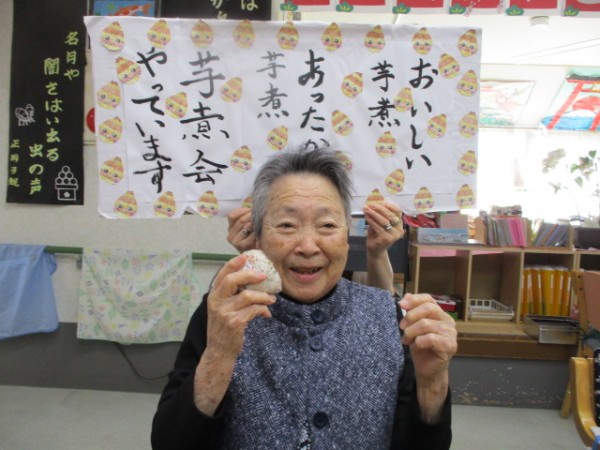 おいしい
芋煮
あったか
芋煮
芋煮会
やっています
名月や
闇をはい出る
虫の声
正岡子規